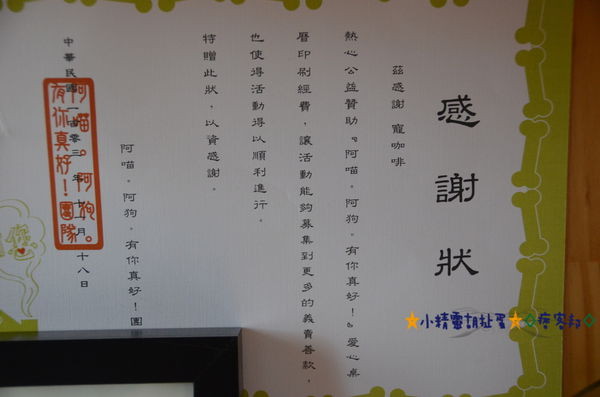 感謝狀
茲感謝 寵咖啡
熱心公益贊助『阿喵。阿狗。有你真好！』愛心桌
曆印刷經費，讓活動能夠募集到更多的義賣善款，
也使得活動得以順利進行。
特贈此狀，以資感謝。
阿喵。阿狗。有你真好！團
阿喵。阿狗。
有你真好！團隊
中華民國一百零三年十一月十八日
☆小精靈胡扯蛋☆◇痞客邦◇